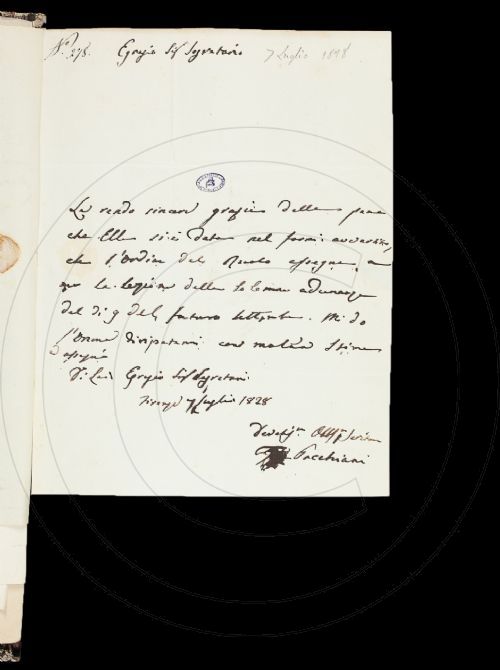 N.° 278. Egregio Sig Segretario 7 Luglio 1828
Le rendo sincere grazie delle pene
che Ella si è data nel farmi avvertire,
che l'Ordine del Ruolo assegna a
me la lezione della solenne adunanza
del di 9 del futuro Settembre. Mi do
l'onore di ripetermi con molta stima
e ossequio
Di Lei Egregio Sig Segretario
Firenze 7 Luglio 1828
Devotis.
Pacchiani